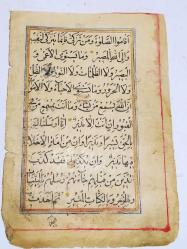 أقاموا الصلوة ومن تزكى فإنما يتزكى لنفسه
وإلى الله المصير وما يستوي الأعمى و
البصير ولا الظلمات ولا النور ولا الظل
ولا الحرور وما يستوي الأحياء ولا الأموات
إن الله يسمع من يشاء وما أنت بمسمع من في
القبور إن أنت إلا نذير إنا أرسلناك
بالحق بشيرا ونذيرا وإن من أمة إلا خلا
فيها نذير وإن يكذبوك فقد كذب
الذين من قبلهم جاءتهم رسلهم بالبينات
وبالزبر وبالكتاب المنير ثم أخذت